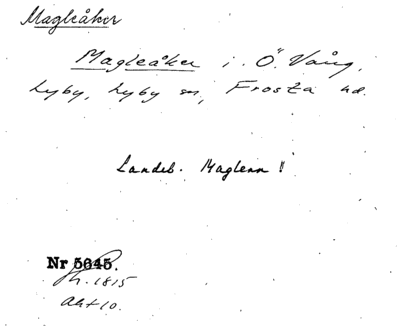 Magleåker
Magleåker i Ö. Vång,
Lyby, Lyby sn, Frosta hd.
Landeb. Maglenn !
Nr 5645.
Sk. 1815
Akt 10.